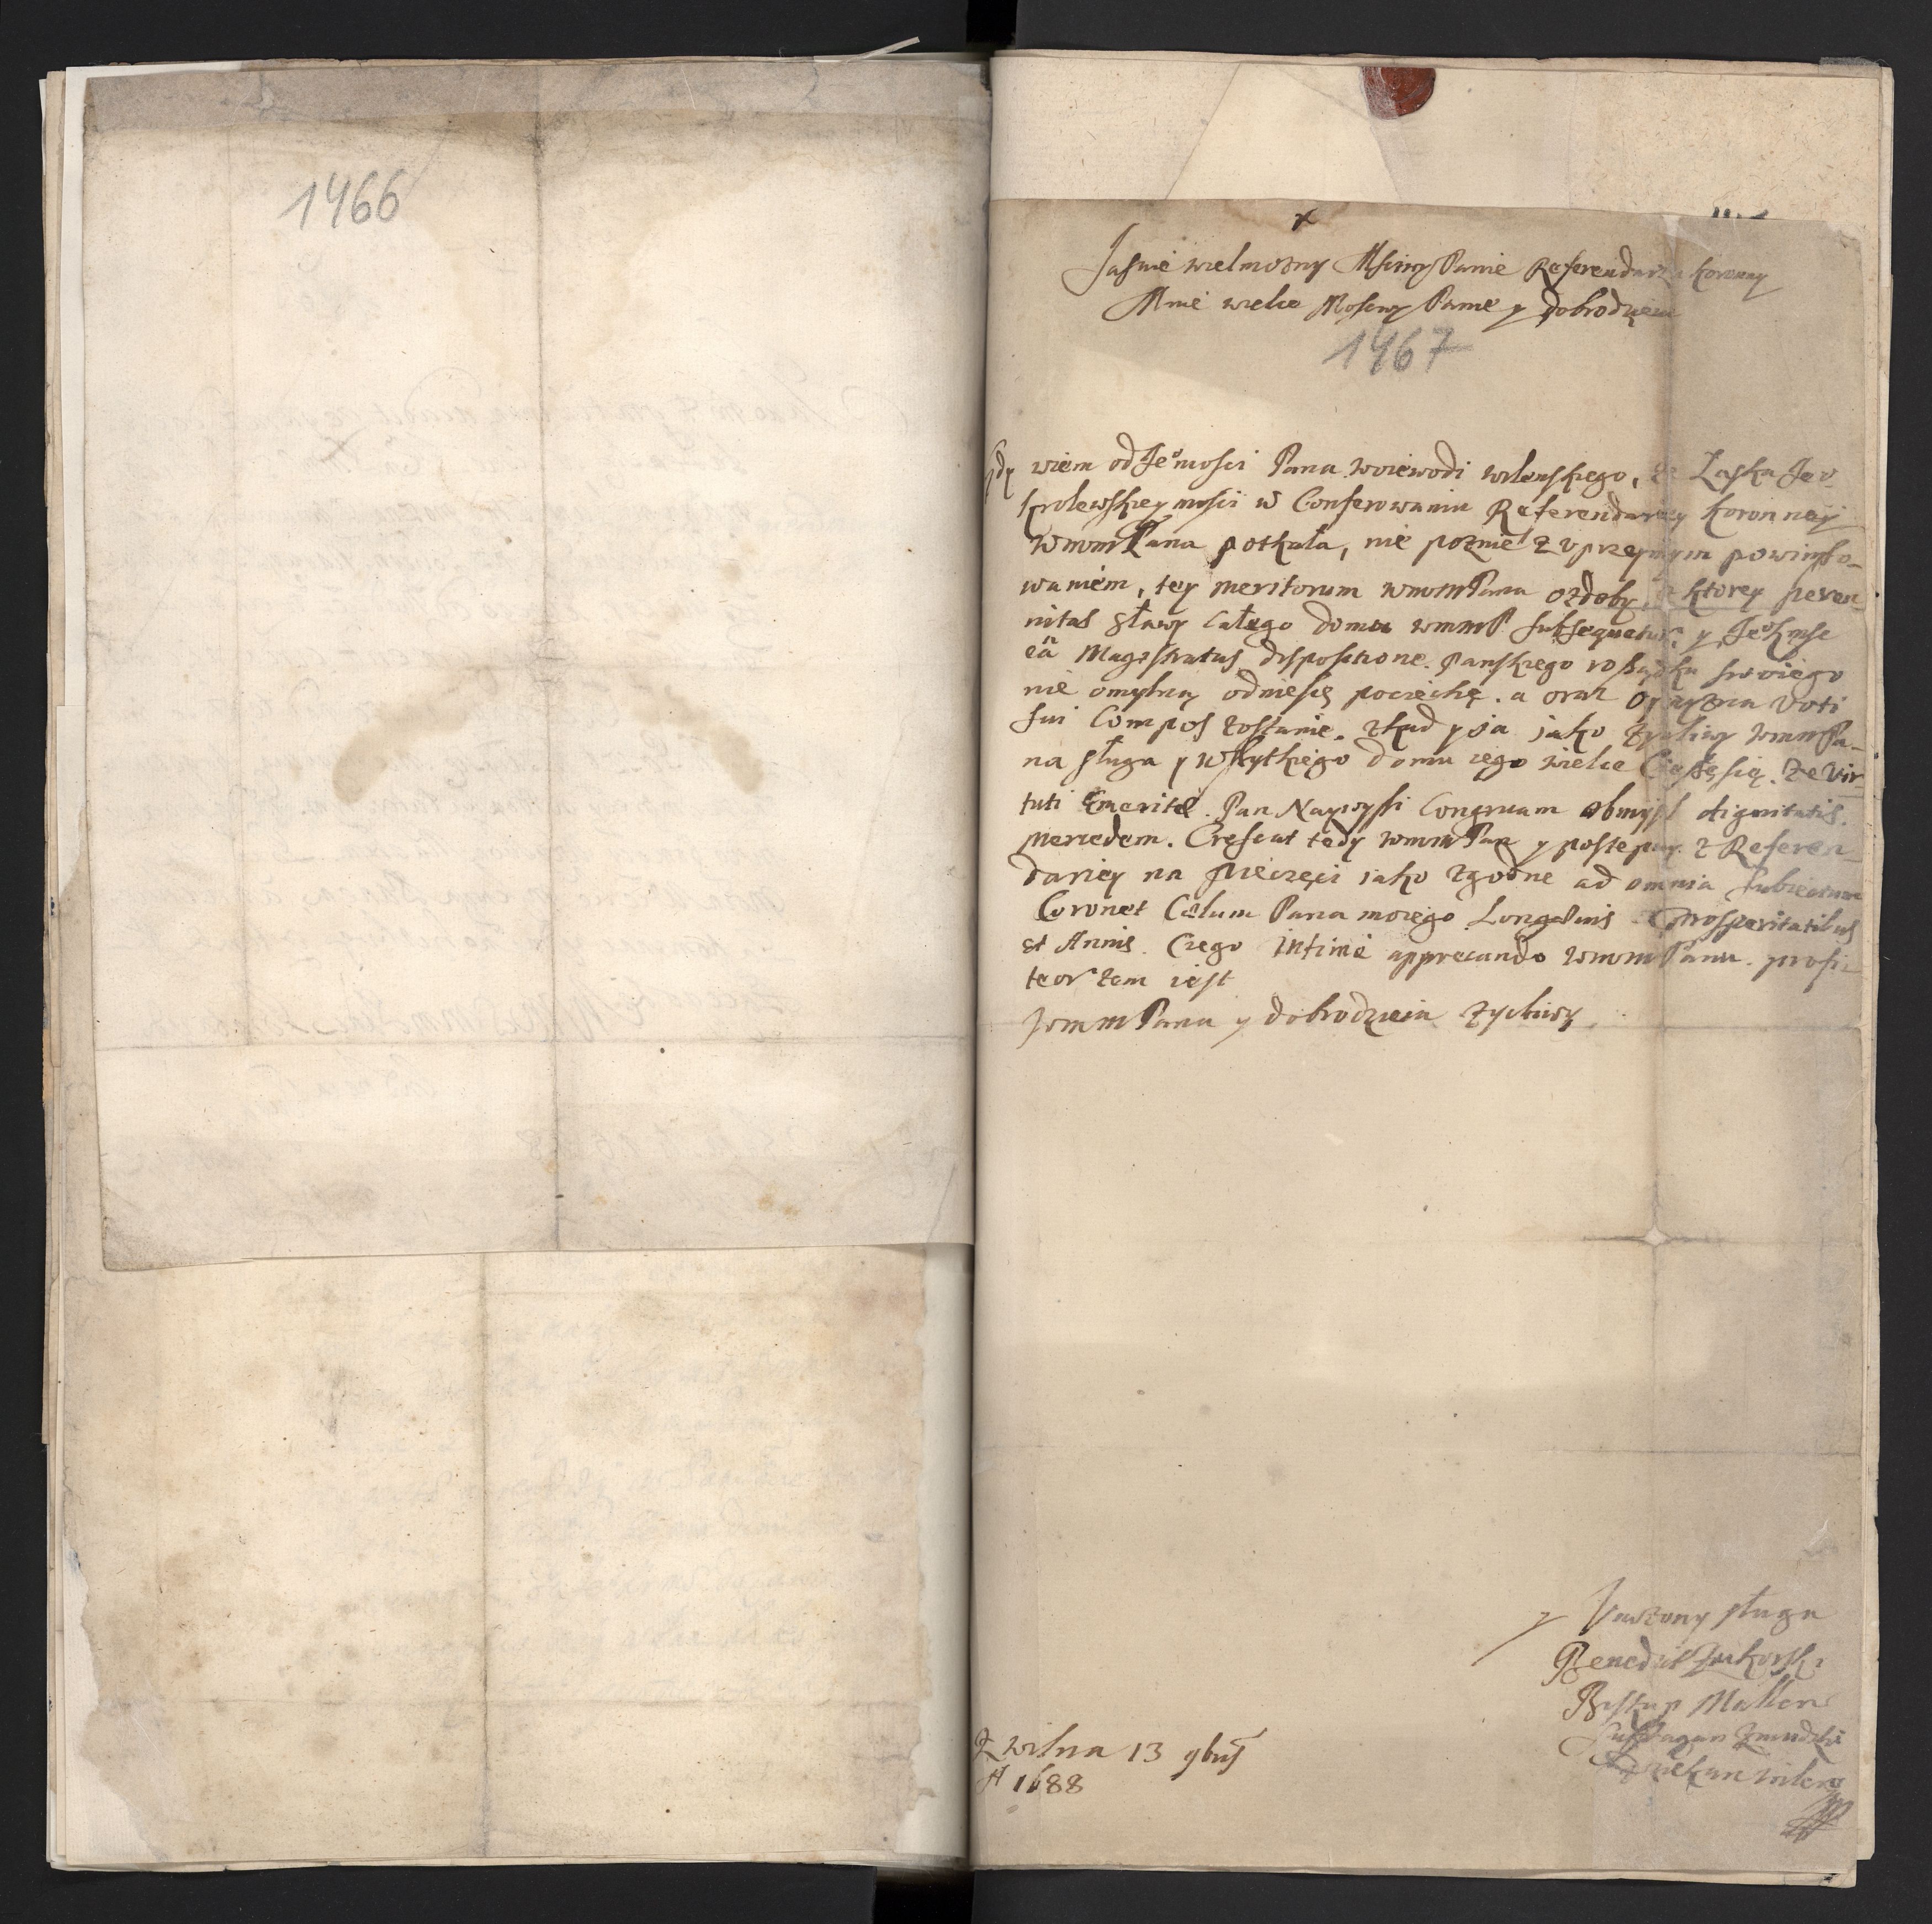 1466
x
Jasnie wielmozny Msciwy Panie Referendarzu koronny
Mnie wielce Mosciwy Panie y dobrodzieiu
1467
Gdy wiem od Jeomosci Pana woiewodi wilenskiego, ze Laska Jeo
krolewskiey mosci w Conferowaniu Referendariey koronney
wmm Pana potkała, nie poznie z uprzeymym powinszo-
waniem, tey meritorum wmm Pana ozdoby, z ktorey peren
nitas sławy całego domu wmmP subsequetur, y Jeokmsc
ea Magistratus dispositione Panskiego rossądku swoiego
nie omylną odniesię pociechę. a oraz oyczyzna voti
sui Compos zostanie. zkąd y ia iako zycliwy wmm Pa-
na sługa y wszytkiego domu iego wielce Cieszę się. ze vir-
tuti Emeritæ Pan Naywyssi Congruam obmysl dignitatis
mercedem. Crescat tedy wmm Pan y postepuy z Referen
dariey na pieczęci iako zgodne ad omnia subiectum
Coronet Cœlum Pana moiego Longævis prosperitatibus
et Annis. Czego intime apprecando wmm Panu. profi-
teor zem iest
wmm Pana y dobrodzieia zycliwy
y Unizony sługa
Benedict Zuchorski
Biskup Mallen
Suffragan Zmudzki
Dziekan wilen
Z wilna 13 9bris
A 1688